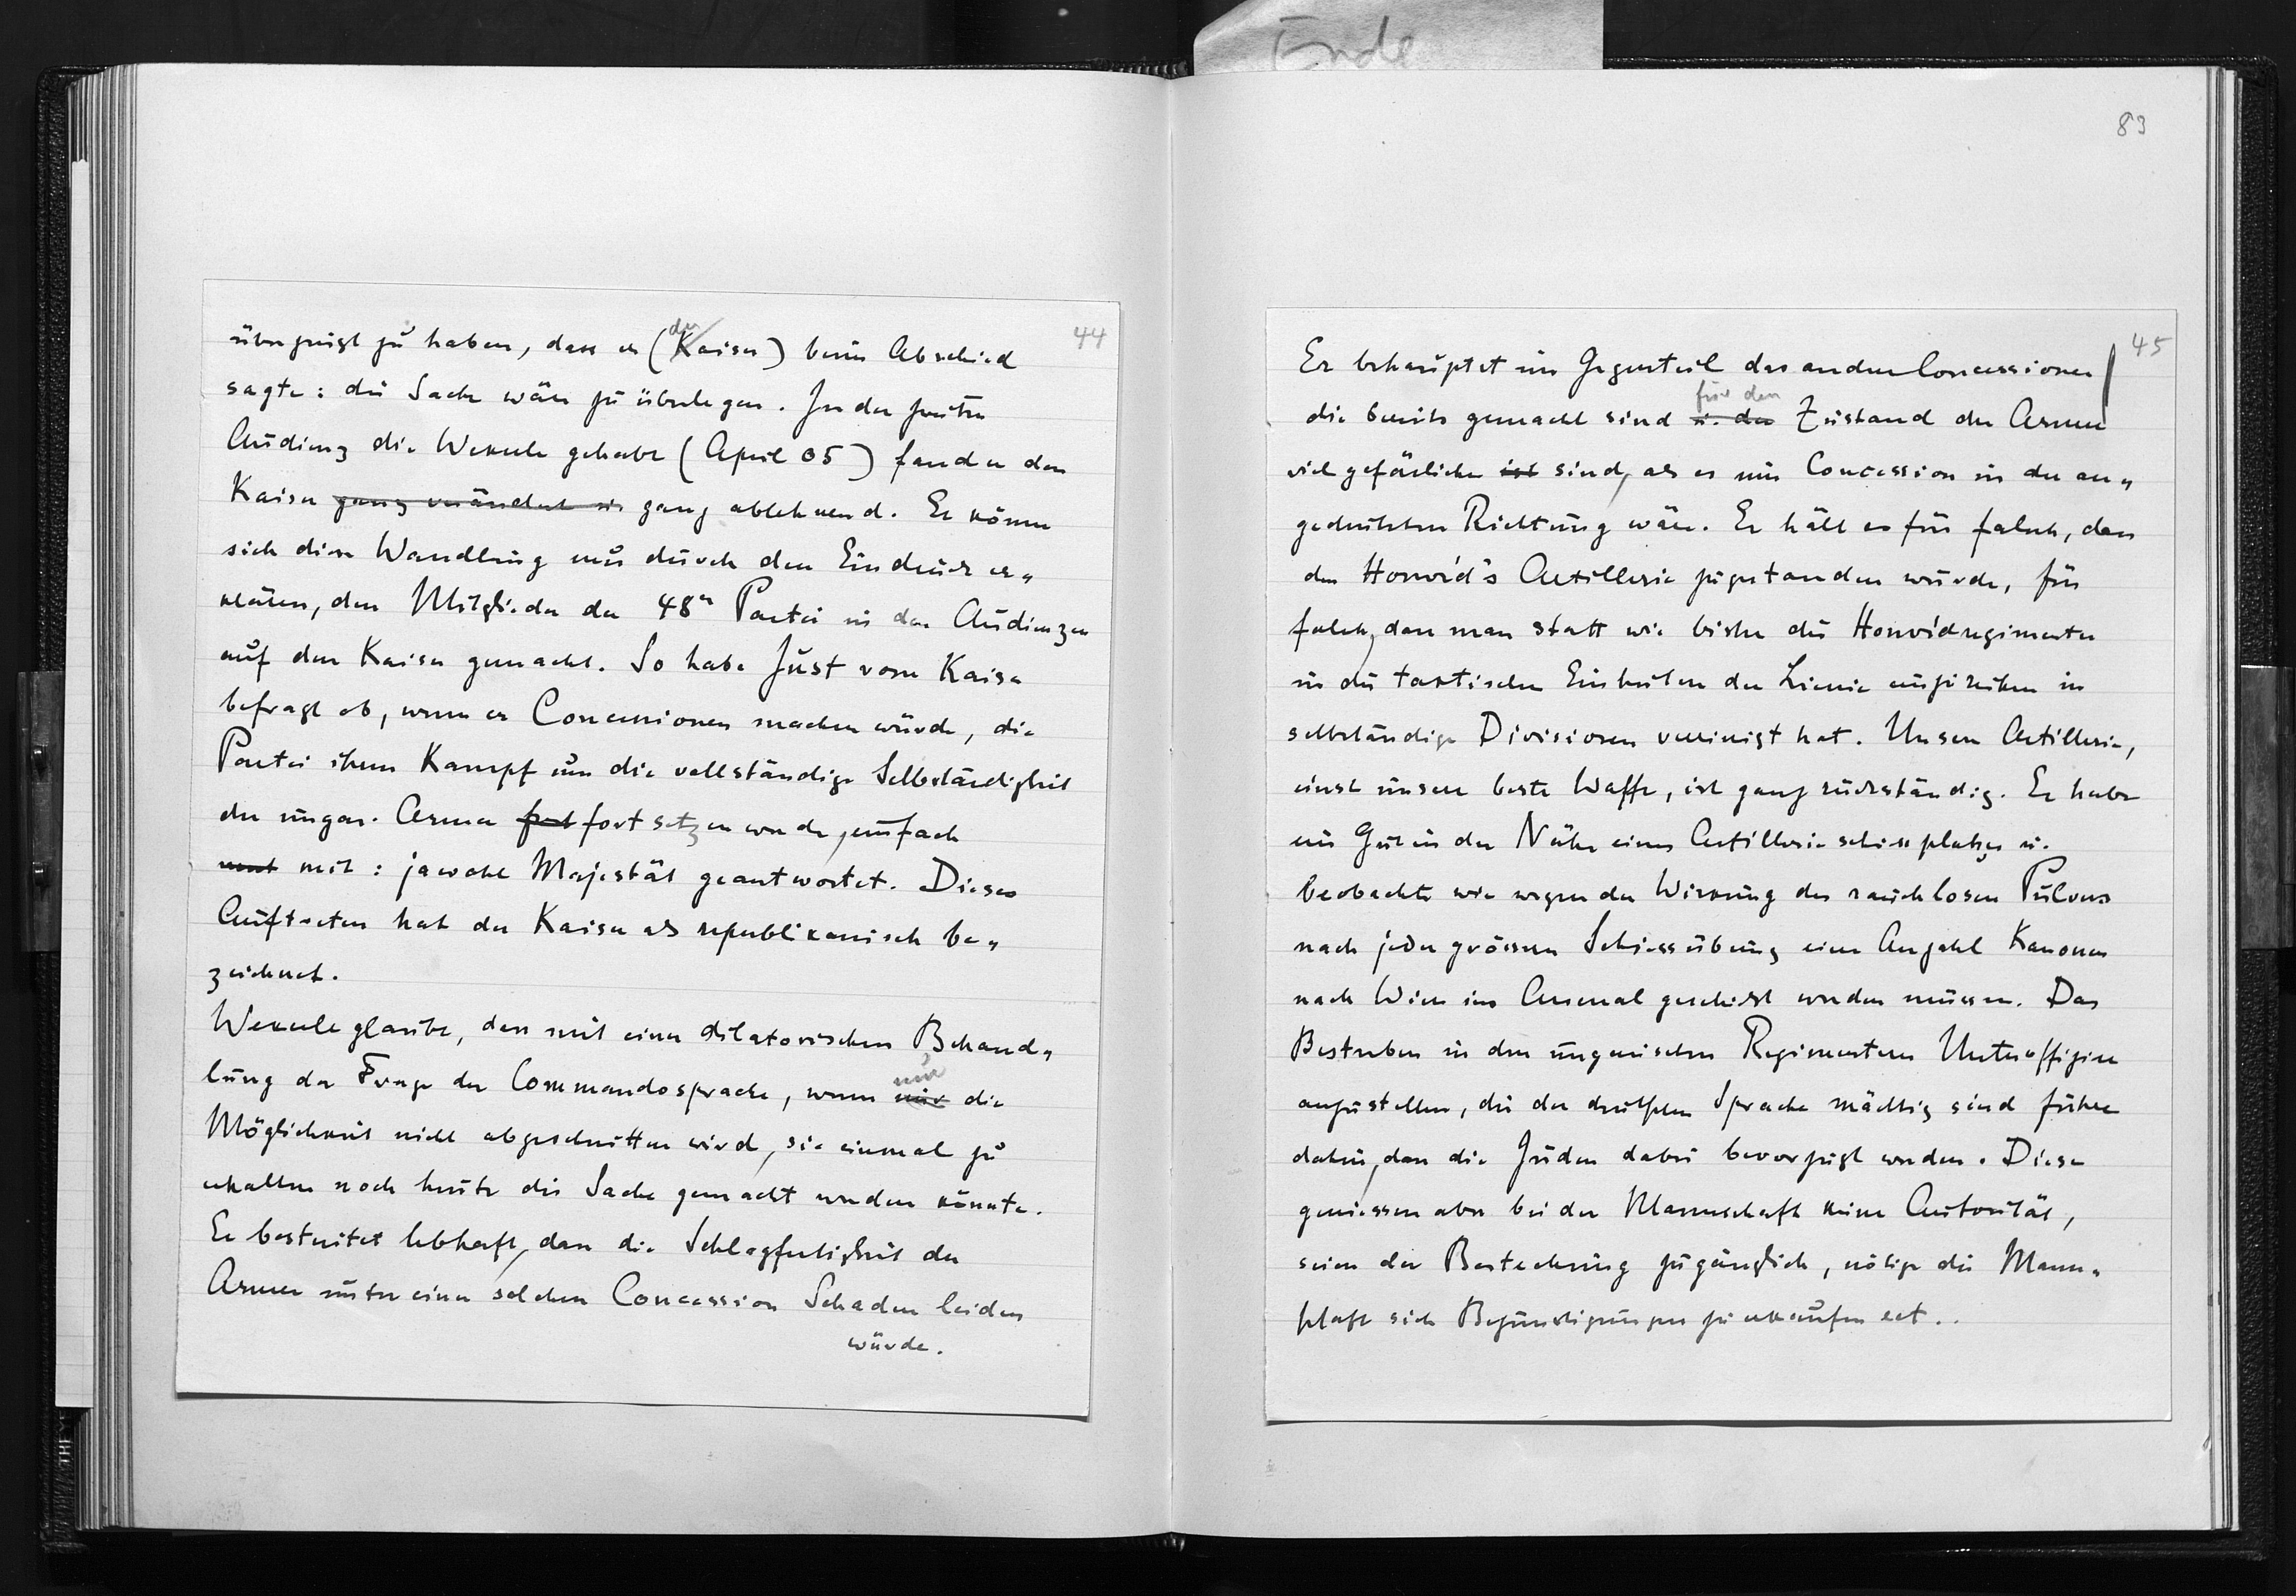 Ende
83
44
überzeugt zu haben, dass er (der Kaiser) beim Abschied
sagte: die Sache wäre zu überlegen. In der zweiten
Audienz die Wekerle gehabt (April 05) fand er den
Kaiser ganz verändert u. ganz ablehnend. Er könne
sich diese Wandlung nur durch den Eindruck er„
klären, den Mitglieder der 48er Partei in den Audienzen
auf den Kaiser gemacht. So habe Just vom Kaiser
befragt ob, wenn er Concessionen machen würde, die
Partei ihren Kampf um die vollständige Selbständigkeit
der ungar. Armee fort fortsetzen werde, einfach
mit : jawohl Majestät geantwortet. Dieses
Auftreten hat der Kaiser als republikanisch be„
zeichnet.
Wekerle glaubt, dass mit einer dilatorischen Behand„
lung der Frage der Commandosprache, wenn nur die
Möglichkeit nicht abgeschnitten wird, sie einmal zu
erhalten noch heute die Sache gemacht werden könnte.
Er bestreitet lebhaft, dass die Schlagfertigkeit der
Armee unter einer solchen Concession Schaden leiden
würde.
45
Er behauptet im Gegenteil das andere Concessionen
die bereits gemacht sind für den Zustand der Armee
viel gefärlicher ist sind, als es eine Concession in der an„
gedeuteten Richtung wäre. Er hält es für falsch, dass
den Honvéd's Artillerie zugestanden wurde, für
falsch, dass man statt wie bisher die Honvédregimenter
in die taktischen Einheiten der Linie einzureihen in
selbständige Divisionen vereinigt hat. Unsere Artillerie,
einst unsere beste Waffe, ist ganz rückständig. Er habe
ein Gut in der Nähe eines Artillerieschiessplatzes u.
beobachte wie wegen der Wirkung des rauchlosen Pulvers
nach jeder grössern Schiessübung eine Anzahl Kanonen
nach Wien ins Arsenal geschickt werden müssen. Das
Bestreben in den ungarischen Regimentern Unteroffiziere
anzustellen, die der deutschen Sprache mächtig sind führe
dahin, dass die Juden dabei bevorzugt werden. Diese
geniessen aber bei der Mannschaft keine Autorität,
seien der Bestechung zugänglich, nötige die Mann„
schaft sich Begünstigungen zu erkaufen ect..